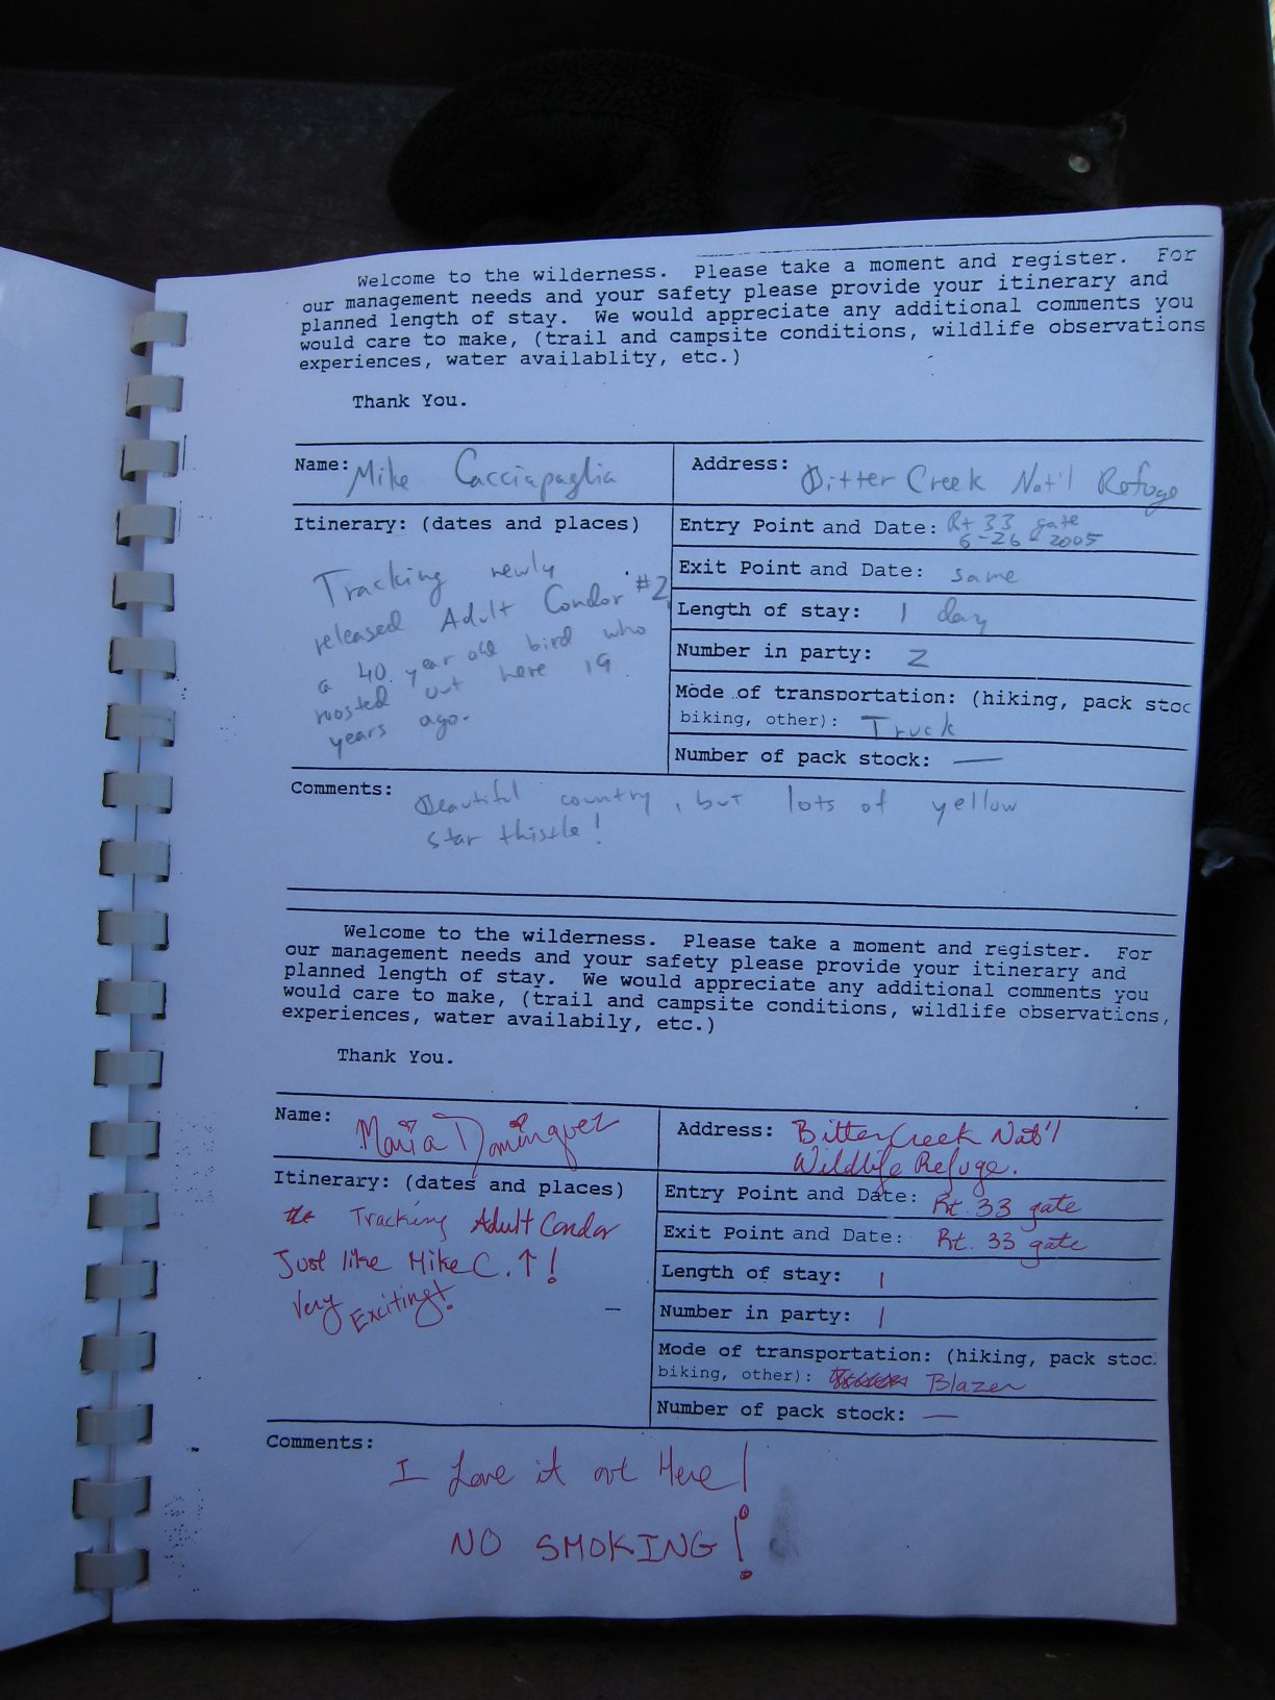 Welcome to the wilderness. Please take a moment and register. For
our management needs and your safety please provide your itinerary and
planned length of stay. We would appreciate any additional comments you
would care to make, (trail and campsite conditions, wildlife observations
experiences, water availablity, etc.)
Thank You.
Name: Mike Cacciapaglia
Address: Bitter Creek Nat'l Refuge
Itinerary: (dates and places)
Tracking newly
released Adult Condor #2,
a 40 year old bird who
roosted out here 19
years ago.
Entry Point and Date: Rt 33 gate
6-26-2005
Exit Point and Date: same
Length of stay: 1 day
Number in party: 2
Mode of transportation: (hiking, pack stoc
biking, other): Truck
Number of pack stock: —
Comments: Beautiful country, but lots of yellow
star thistle!
Welcome to the wilderness. Please take a moment and register. For
our management needs and your safety please provide your itinerary and
planned length of stay. We would appreciate any additional comments you
would care to make, (trail and campsite conditions, wildlife observations,
experiences, water availabily, etc.)
Thank You.
Name: Maria Dominguez
Address: Bitter Creek Nat'l
Wildlife Refuge.
Itinerary: (dates and places)
Tracking Adult Condor
Just like Mike C. ↑!
Very Exciting!
Entry Point and Date: Rt. 33 gate
Exit Point and Date: Rt. 33 gate
Length of stay: 1
Number in party: 1
Mode of transportation: (hiking, pack stoc
biking, other): Blazer
Number of pack stock: —
Comments:
I Love it out Here!
NO SMOKING!